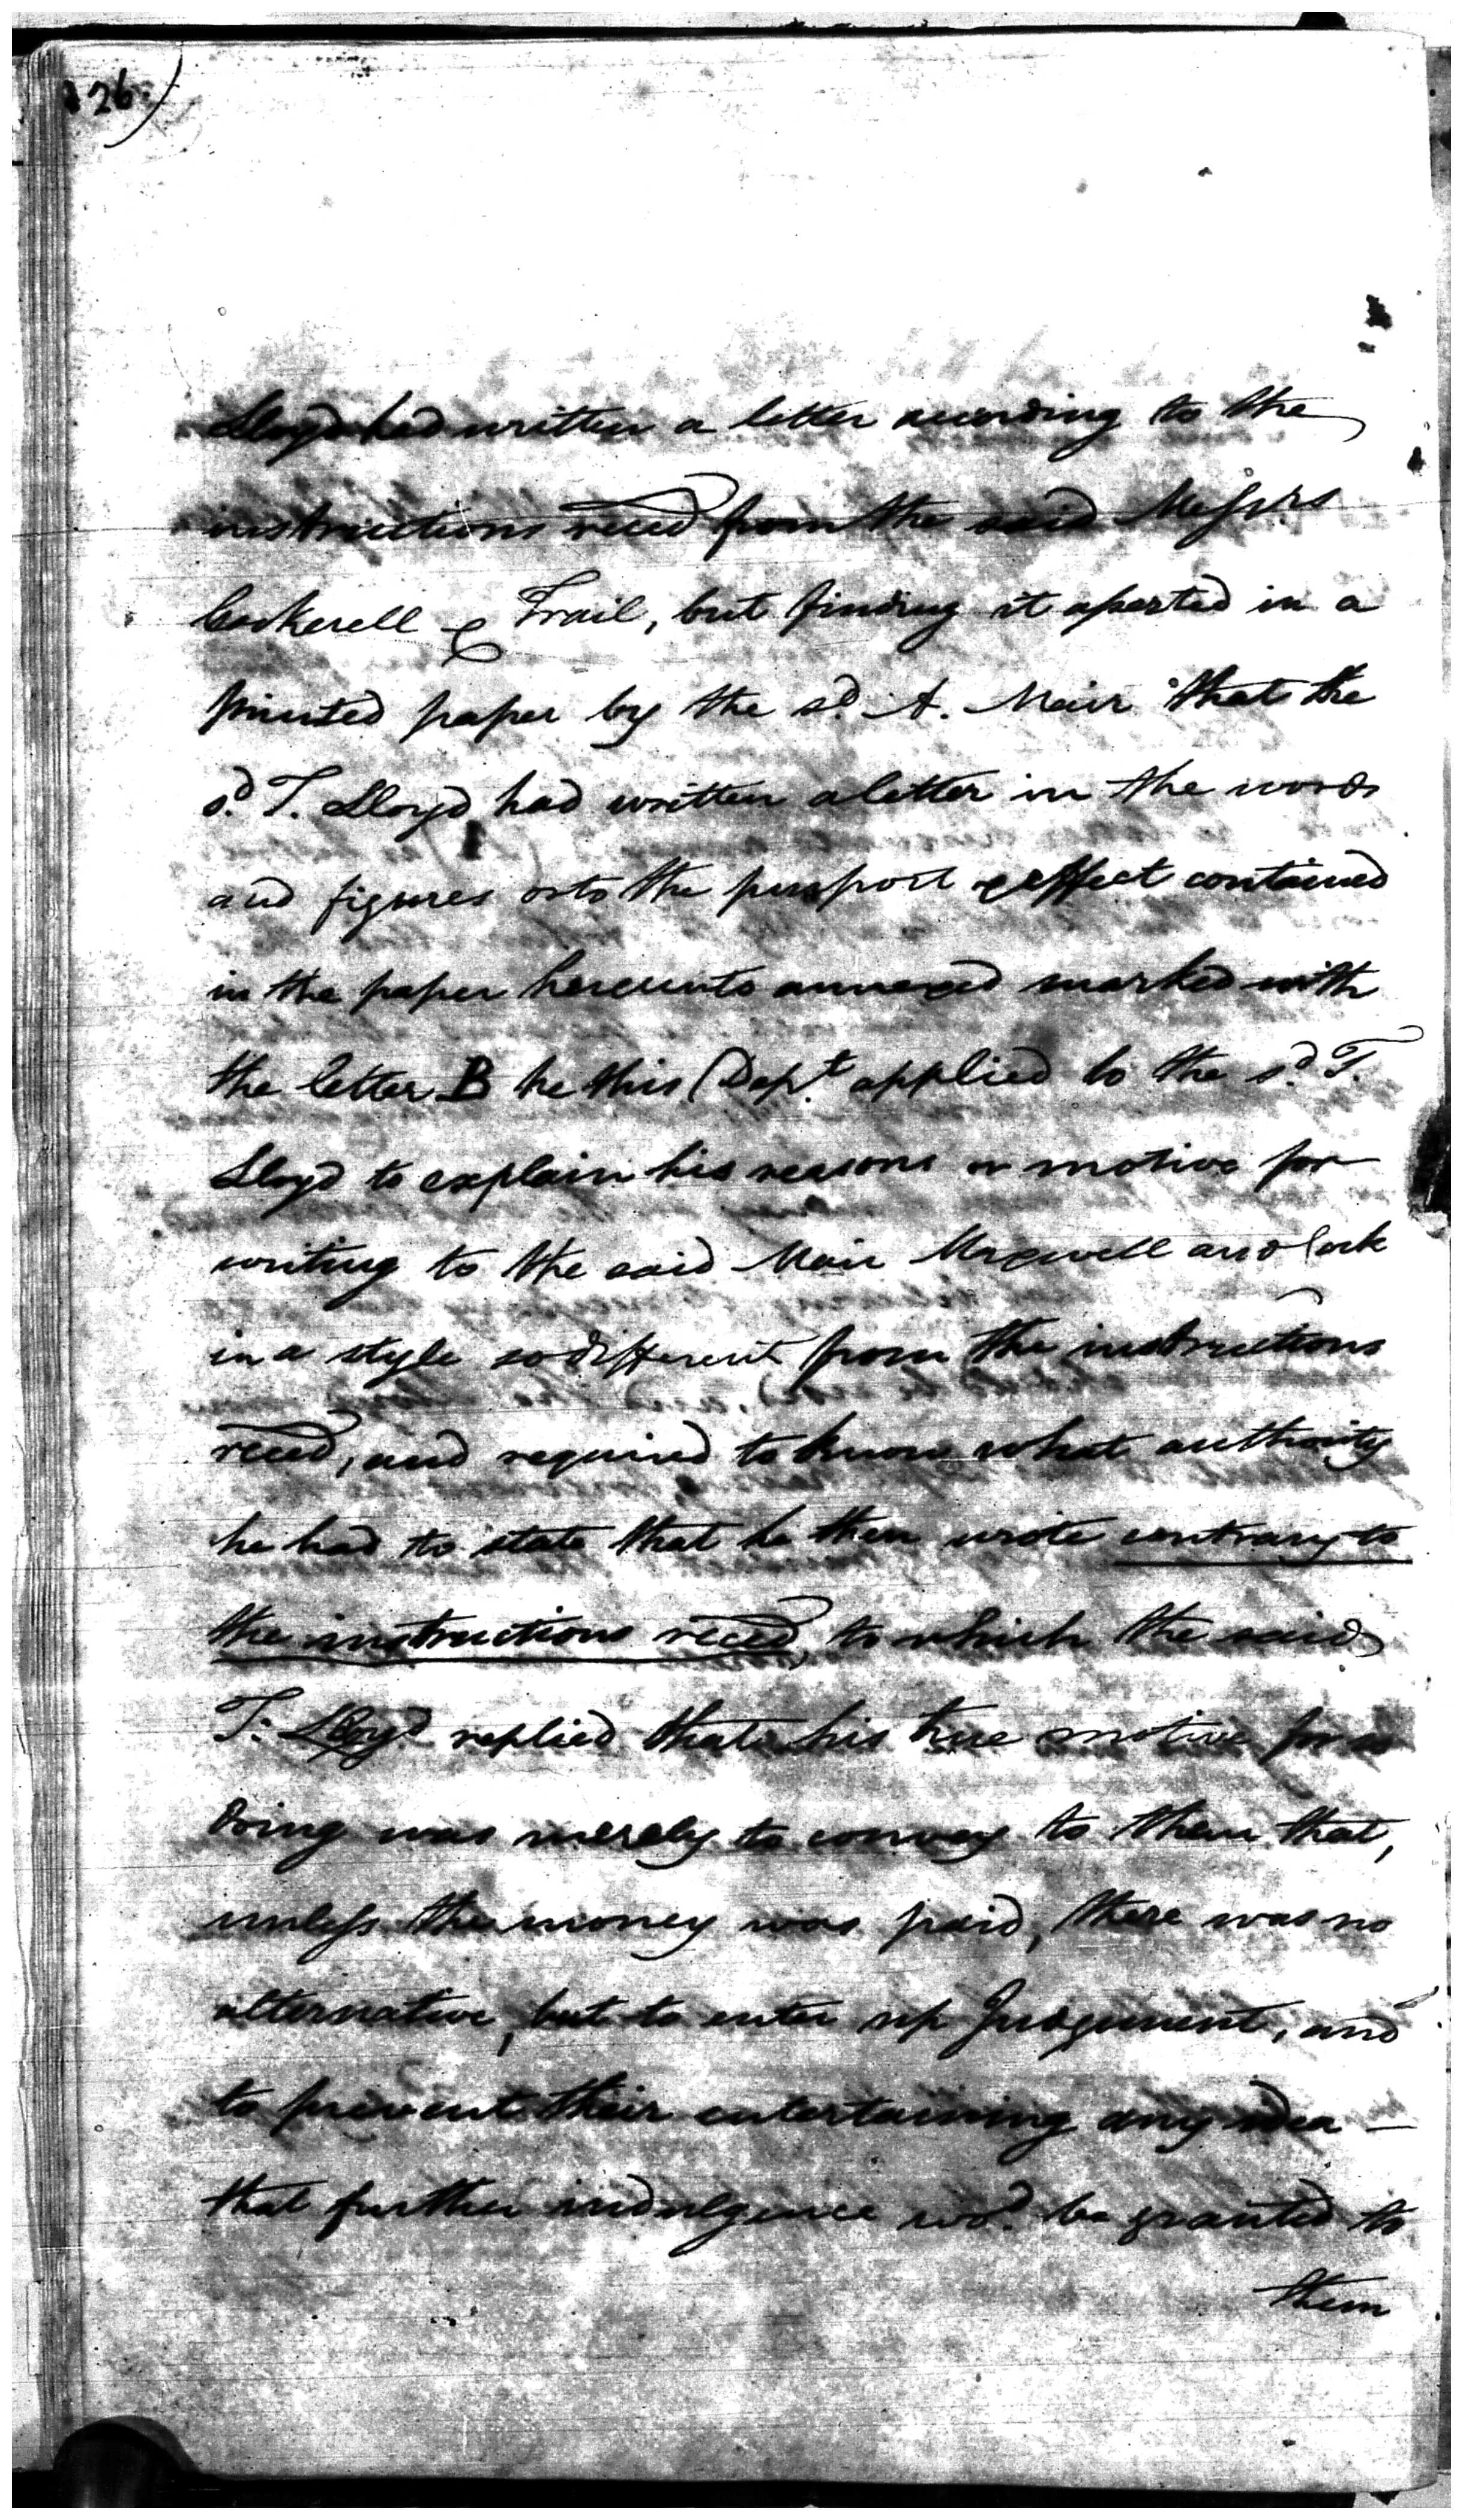 26)
Lloyd had written a letter according to the
instructions reced from the said Messrs
Cockerell & Trail, but finding it asserted in a
printed paper by the sd. A. Mair that the
sd. T. Lloyd had written a letter in the words
and figures or to the purport & effect contained
in the paper hereunto annexed marked with
the letter B he this Dept. applied to the sd. T.
Lloyd to explain his reasons or motive for
writing to the said Mair Maxwell and
in a style so different from the instructions
reced, and required to know what authority
he had to state that he then wrote contrary to
the instructions reced, to which the said
T. Lloyd replied that his true motive for so
doing was merely to convey to them that,
unless the money was paid, there was no
alternative, but to enter up Judgement, and
to prevent their entertaining any idea —
that further indulgence wod. be granted to
them